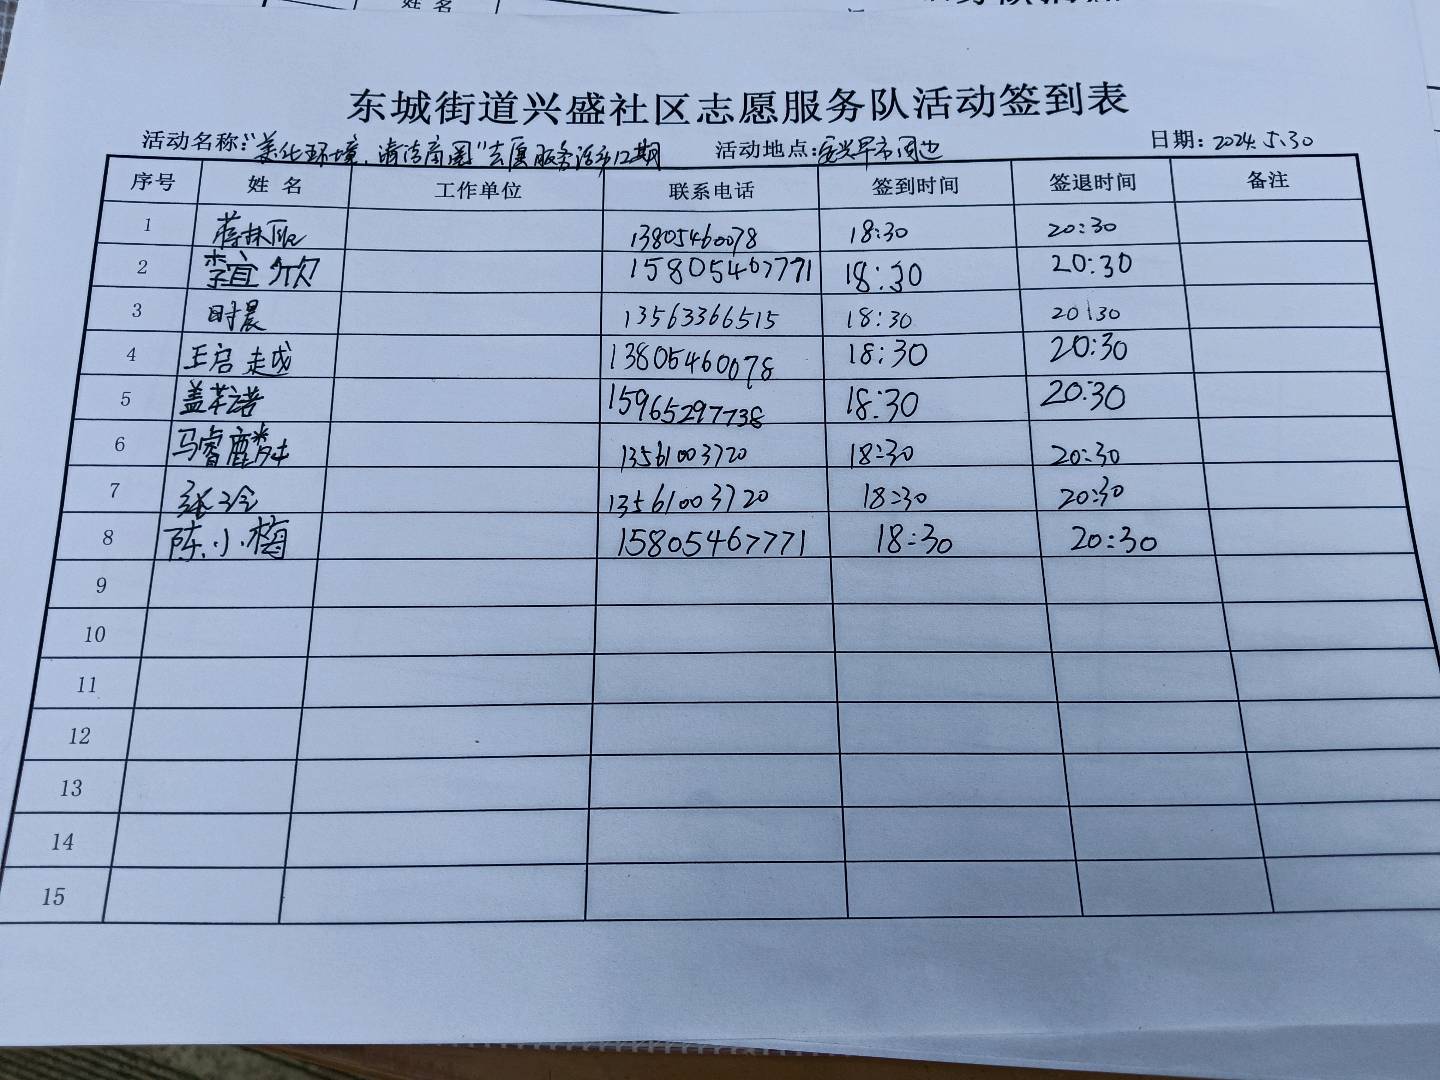 姓 名
东城街道兴盛社区志愿服务队活动签到表
活动名称:“美化环境、清洁商圈”志愿服务活动12期 活动地点:安兴早市周边 日期:2024.5.30
序号 姓 名 工作单位 联系电话 签到时间 签退时间 备注
1 13805460078 18:30 20:30
2 李宜欣 15805467771 18:30 20:30
3 时晨 13563366515 18:30 20:30
4 王启 13805460078 18:30 20:30
5 盖若诺 15965297738 18:30 20:30
6 马睿麟 13561003720 18:30 20:30
7 张玲 13561003720 18:30 20:30
8 陈小梅 15805467771 18:30 20:30
9
10
11
12
13
14
15